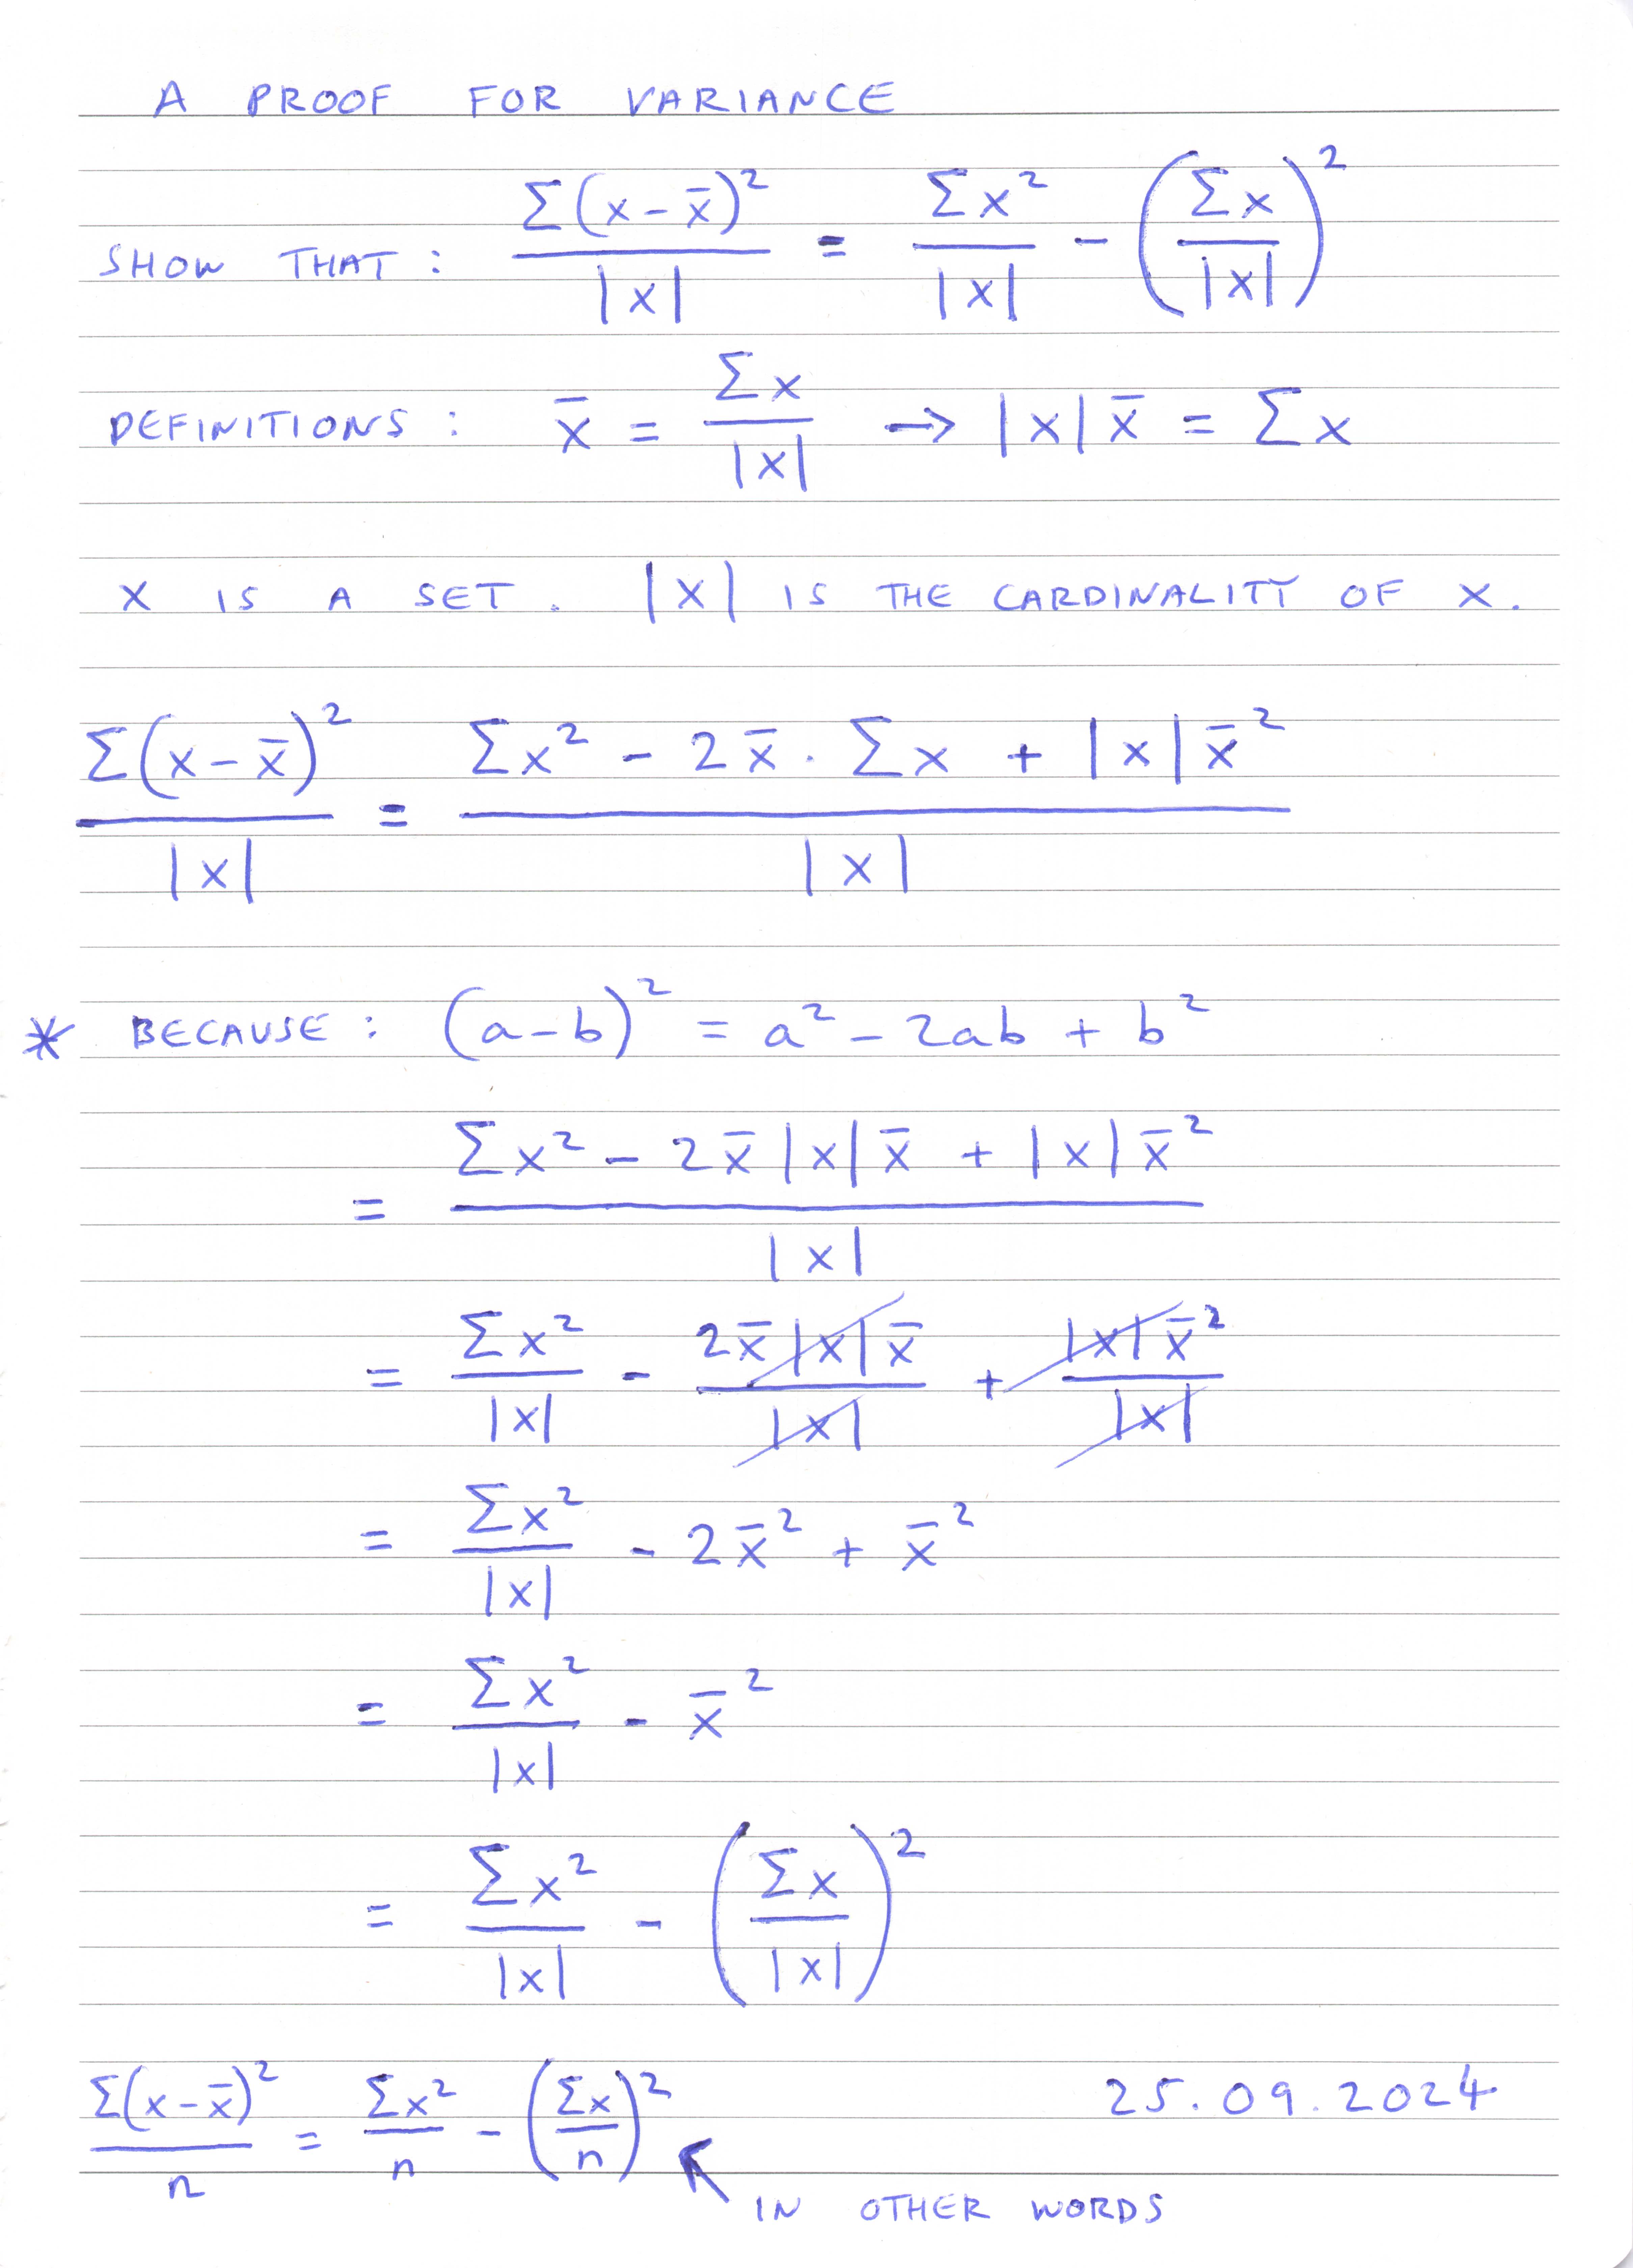 A PROOF FOR VARIANCE
SHOW THAT : Σ(x - x̄)² / |x| = Σx² / |x| - (Σx / |x|)²
DEFINITIONS : x̄ = Σx / |x| → |x| x̄ = Σx
X IS A SET . |X| IS THE CARDINALITY OF X.
Σ(x - x̄)² / |x| = (Σx² - 2x̄ . Σx + |x| x̄²) / |x|
* BECAUSE : (a - b)² = a² - 2ab + b²
= (Σx² - 2x̄ |x| x̄ + |x| x̄²) / |x|
= Σx² / |x| - 2x̄ |x| x̄ / |x| + |x| x̄² / |x|
= Σx² / |x| - 2x̄² + x̄²
= Σx² / |x| - x̄²
= Σx² / |x| - (Σx / |x|)²
Σ(x - x̄)² / n = Σx² / n - (Σx / n)²
25.09.2024
IN OTHER WORDS